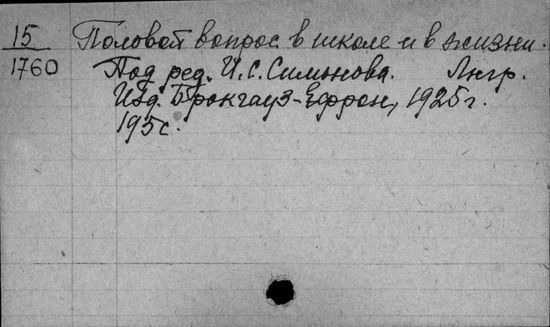 15 Половой вопрос в школе и в жизни.
1760 Под ред. И. С. Симонова. Лнгр.
Изд. Брокгауз-Ефрон, 1925 г.
195 с.